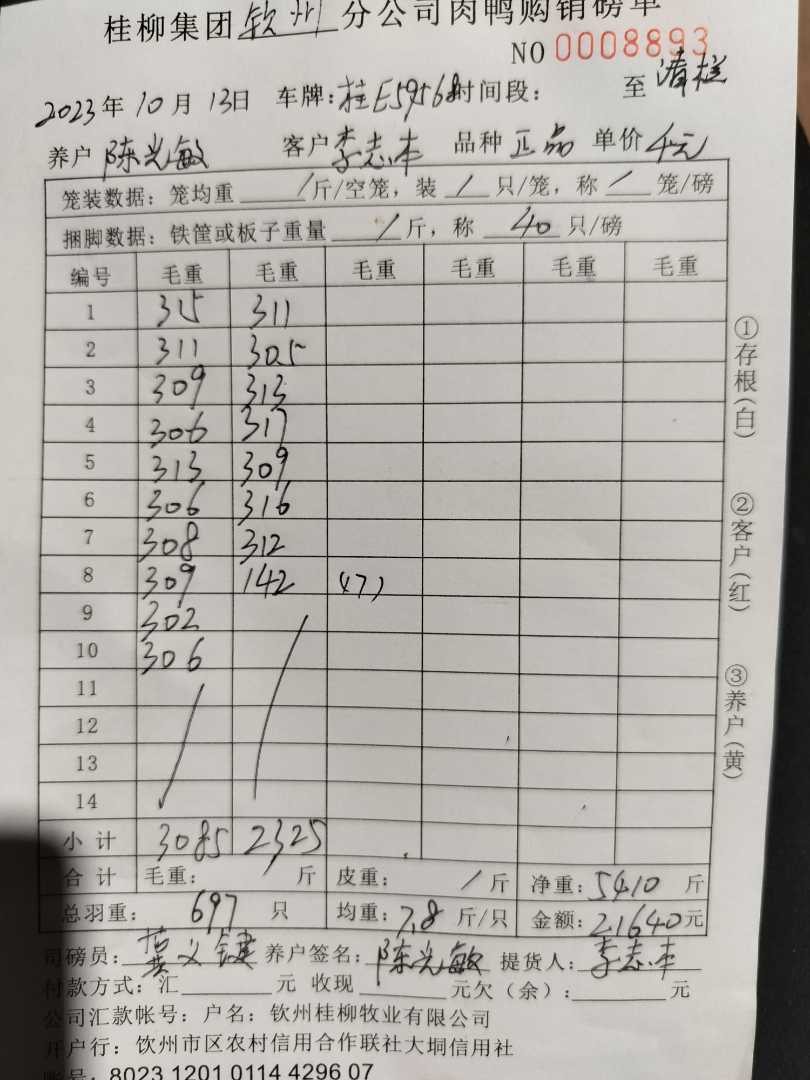 桂柳集团钦州分公司肉鸭购销磅单
NO 0008893
2023年10月13日 车牌:桂E59568时间段: 至清栏
养户陈光敏 客户李志丰 品种正品 单价4元
笼装数据:笼均重 / 斤/空笼,装 / 只/笼,称 / 笼/磅
捆脚数据:铁筐或板子重量 / 斤,称 40 只/磅
编号 毛重 毛重 毛重 毛重 毛重 毛重
1 315 311
2 311 305
3 309 313
4 306 317
5 313 309
6 306 316
7 308 312
8 309 142 (17)
9 302
10 306
11
12
13
14
小计 3085 2325
合计 毛重: / 斤 皮重: / 斤 净重:5410 斤
总羽重: 697 只 均重:7.8 斤/只 金额:21640元
①存根(白)
②客户(红)
③养户(黄)
司磅员: 义键 养户签名:陈光敏 提货人:李志丰
付款方式:汇 元 收现 元欠(余): 元
公司汇款帐号:户名:钦州桂柳牧业有限公司
开户行:饮州市区农村信用合作联社大垌信用社
账号:8023 1201 0114 4296 07